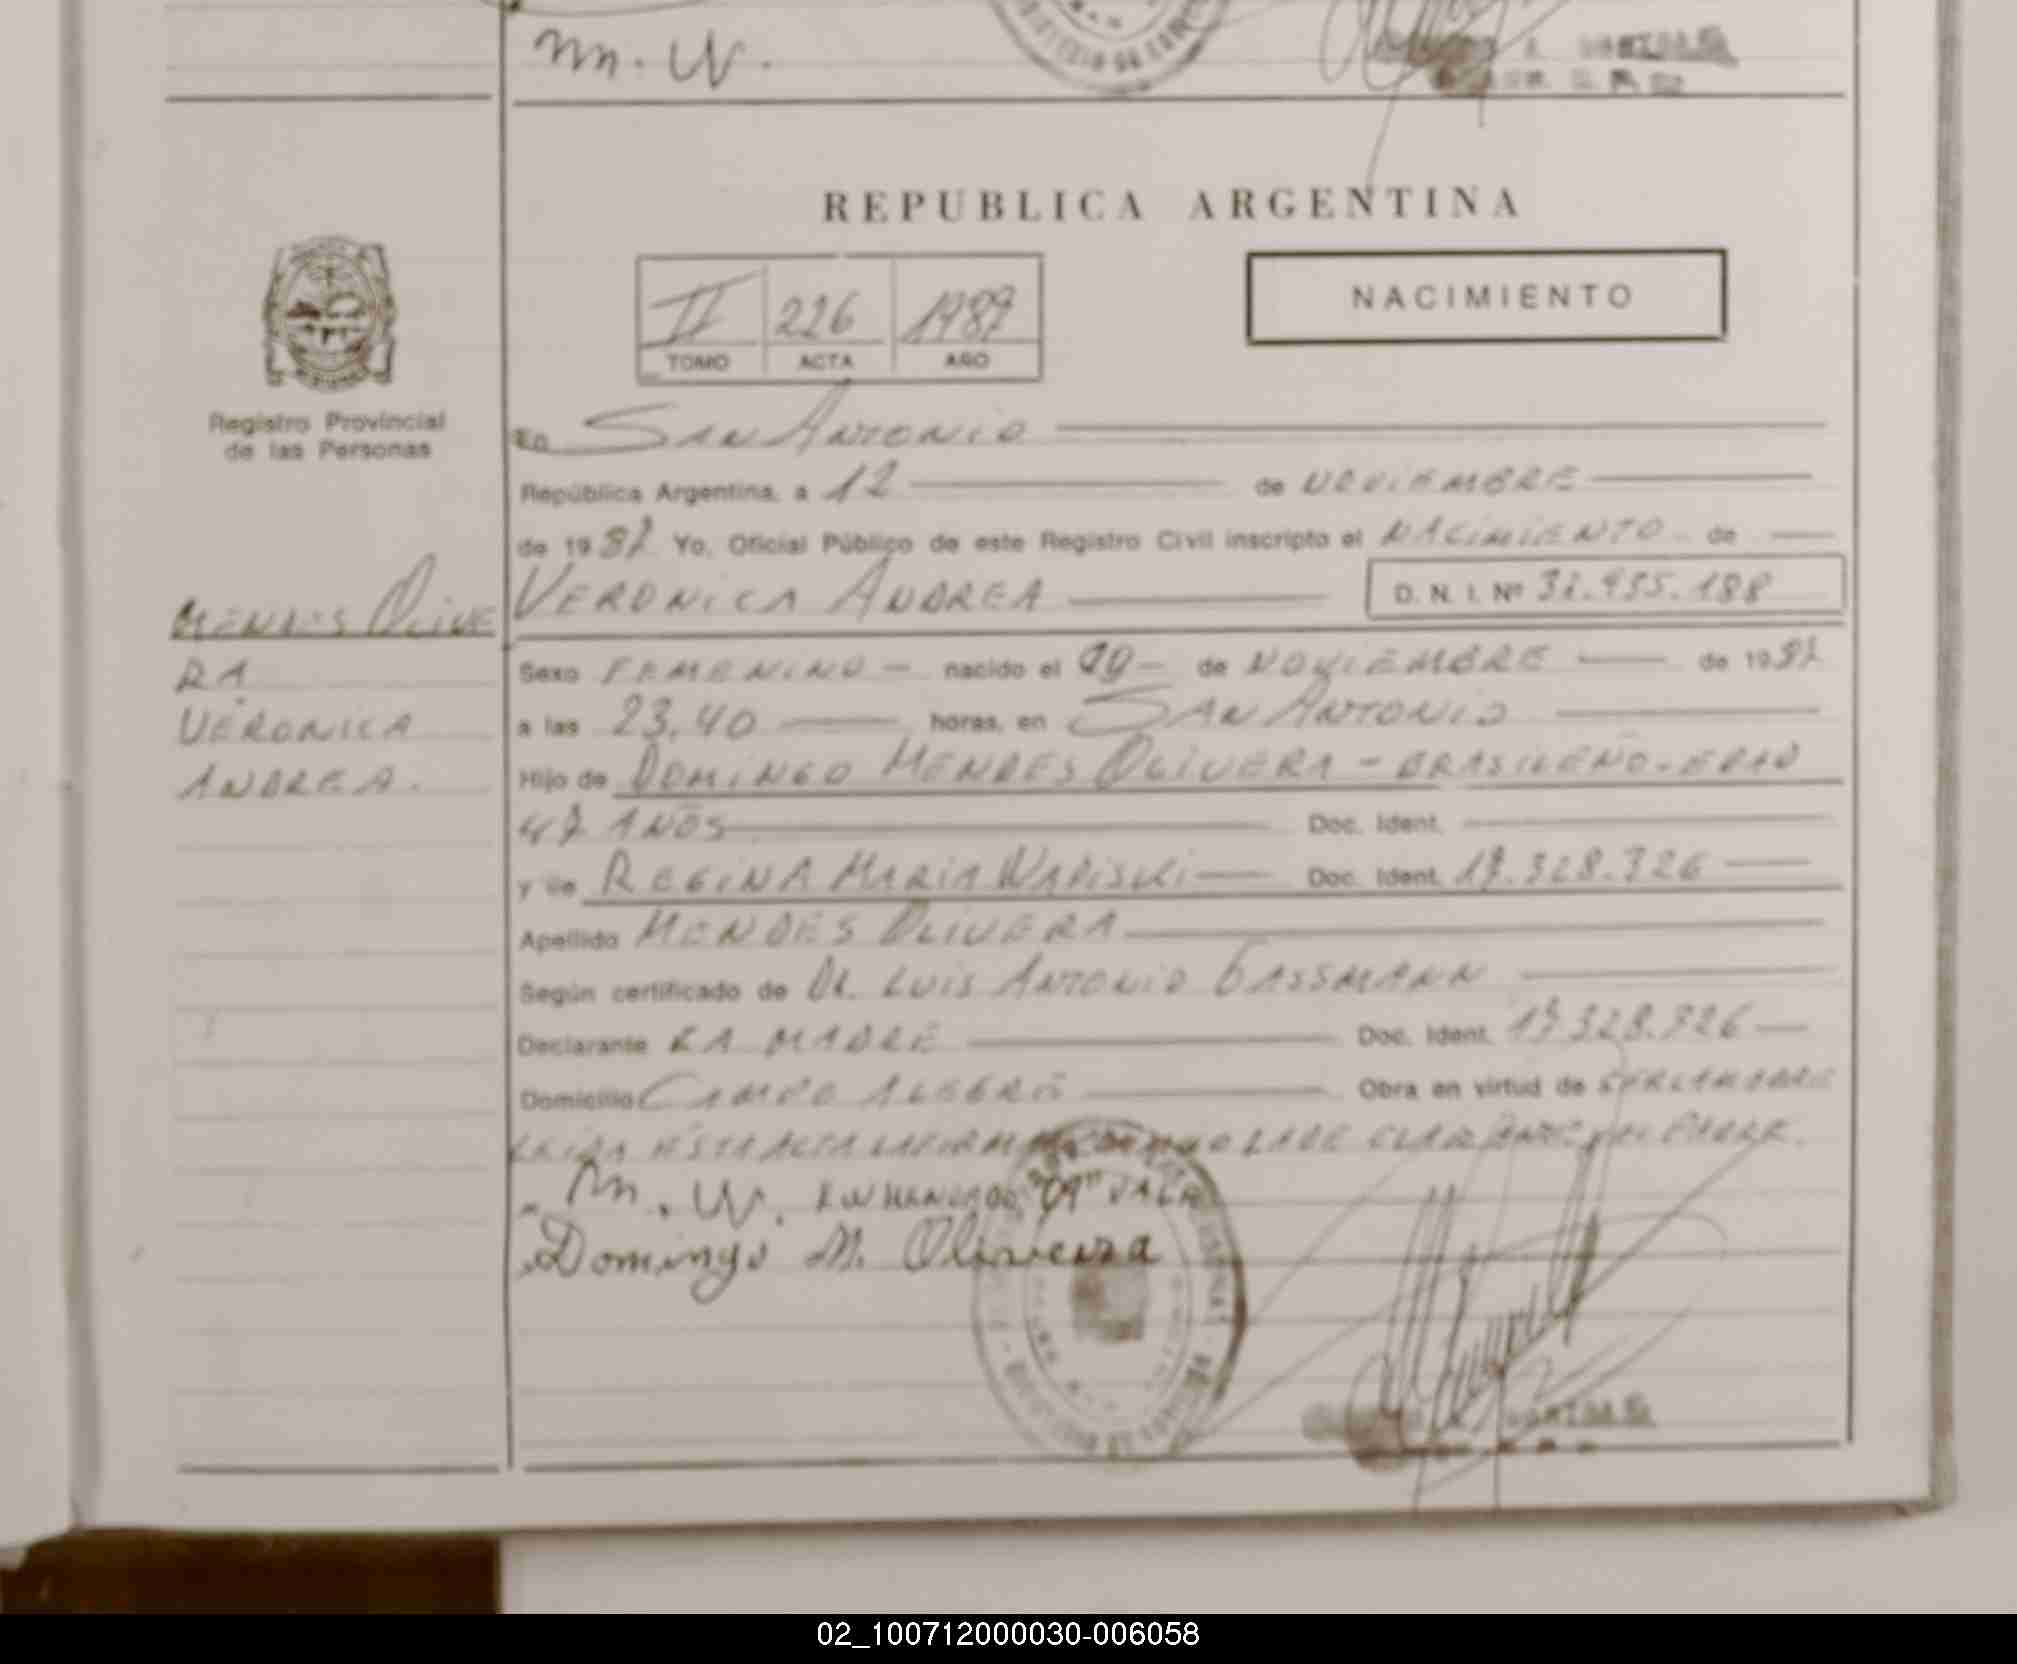 m. W.
REPUBLICA ARGENTINA
II 226 1987
TOMO ACTA AÑO
NACIMIENTO
Registro Provincial
de las Personas
En SAN ANTONIO
República Argentina, a 12 de NOVIEMBRE
de 1987 Yo, Oficial Público de este Registro Civil inscripto el NACIMIENTO de
VERONICA ANDREA D. N. I. Nº
MENDES OLIVE
RA
VERONICA
ANDREA.
Sexo FEMENINO - nacido el 09 - de NOVIEMBRE de 1987
a las 23,40 horas, en SAN ANTONIO
Hijo de DOMINGO MENDES OLIVERA - BRASILEÑO - EDAD
47 AÑOS Doc. Ident.
y de REGINA MARIA Doc. Ident.
Apellido MENDES OLIVERA
Según certificado de DR. LUIS ANTONIO GASSMANN
Declarante LA MADRE Doc. Ident.
Domicilio CAMPO ALEGRE Obra en virtud de
LEIDA ESTA ACTA LA FIRMA PADRE.
m. W. "09" VALE
Domingo M. Oliveira
02_100712000030-006058